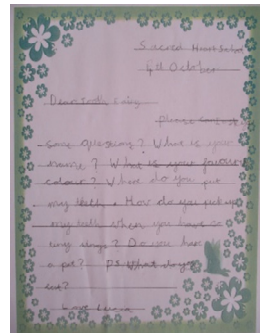 Sacred Heart School
4th October
Dear Tooth Fairy
Please can I ask
some questions? What is your
name? What is your favourite
colour? Where do you put
my teeth. How do you put up
my teeth when you have so
tiny wings? Do you have
a pet? PS What do you
eat?
Love